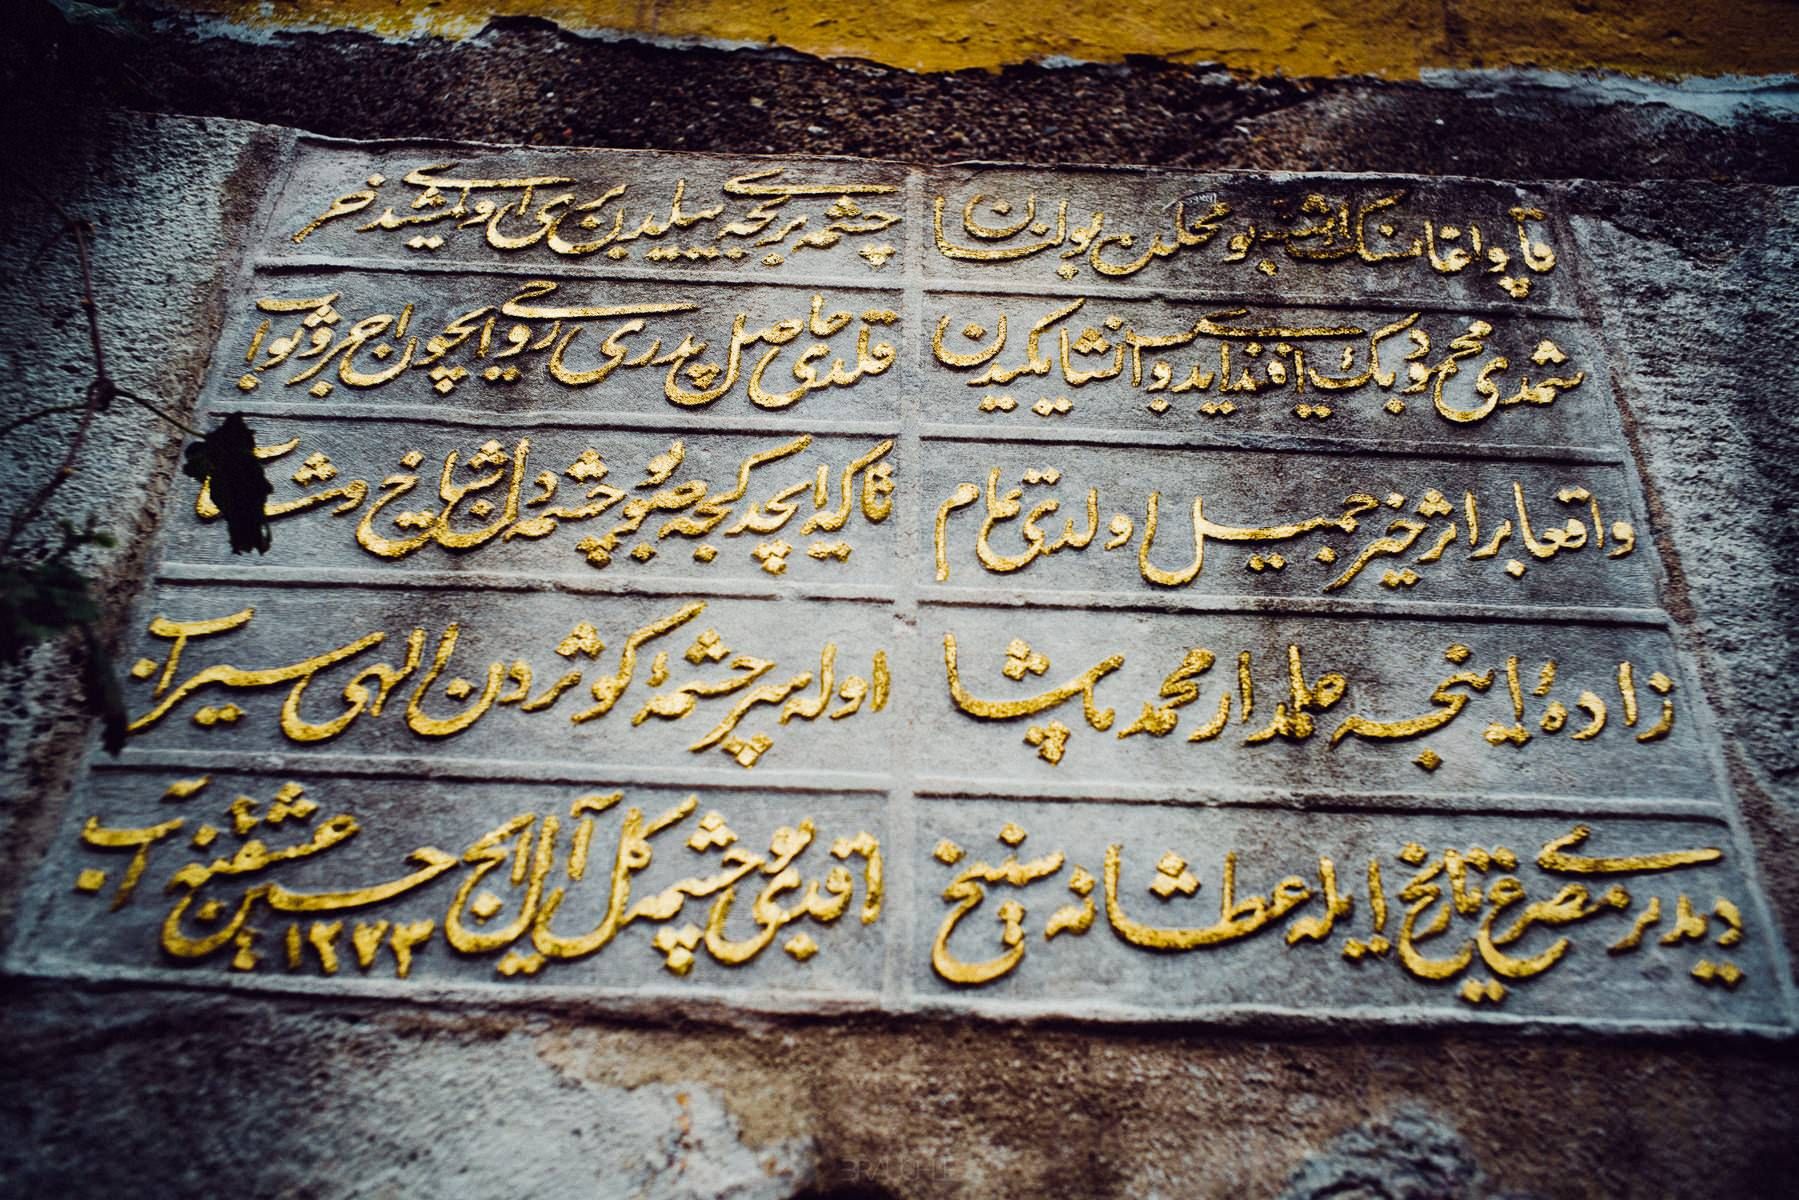 قاپو اغاسنك اشبو محلدن بولنان چشمه بر نیجه ییلدن بری اولمیشدی خراب
شمدی محمود بك افندی ایدوب انشا یكیدن قلدی حاصل پدری روحی ایچون اجر و ثواب
واقعا بر اثر خیر جمیل اولدی تمام تاكه ایچدكجه صو چشمه دن شیخ و شاب
زادهٔ اینجه علمدار محمد پاشا اوله سرچشمهٔ كوثردن الهی سیراب
دیدی بر مصرع تاریخ ایله عطشانه سنیح اقدی بو چشمه كل آل ایچ حسین عشقنه آب
١٢٧٣